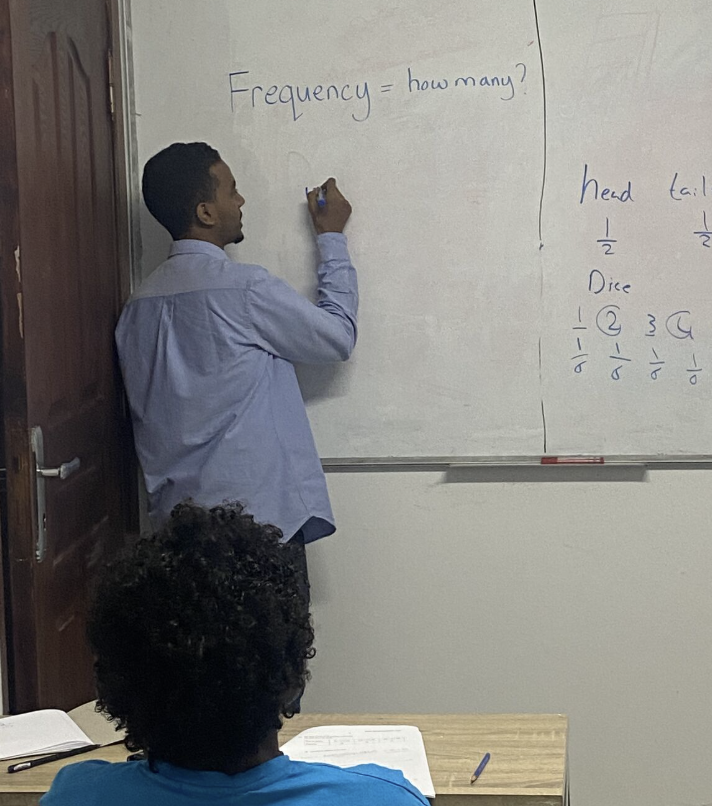 Frequency = how many?
head tail
1/2 1/2
Dice
1 2 3 4
1/6 1/6 1/6 1/6